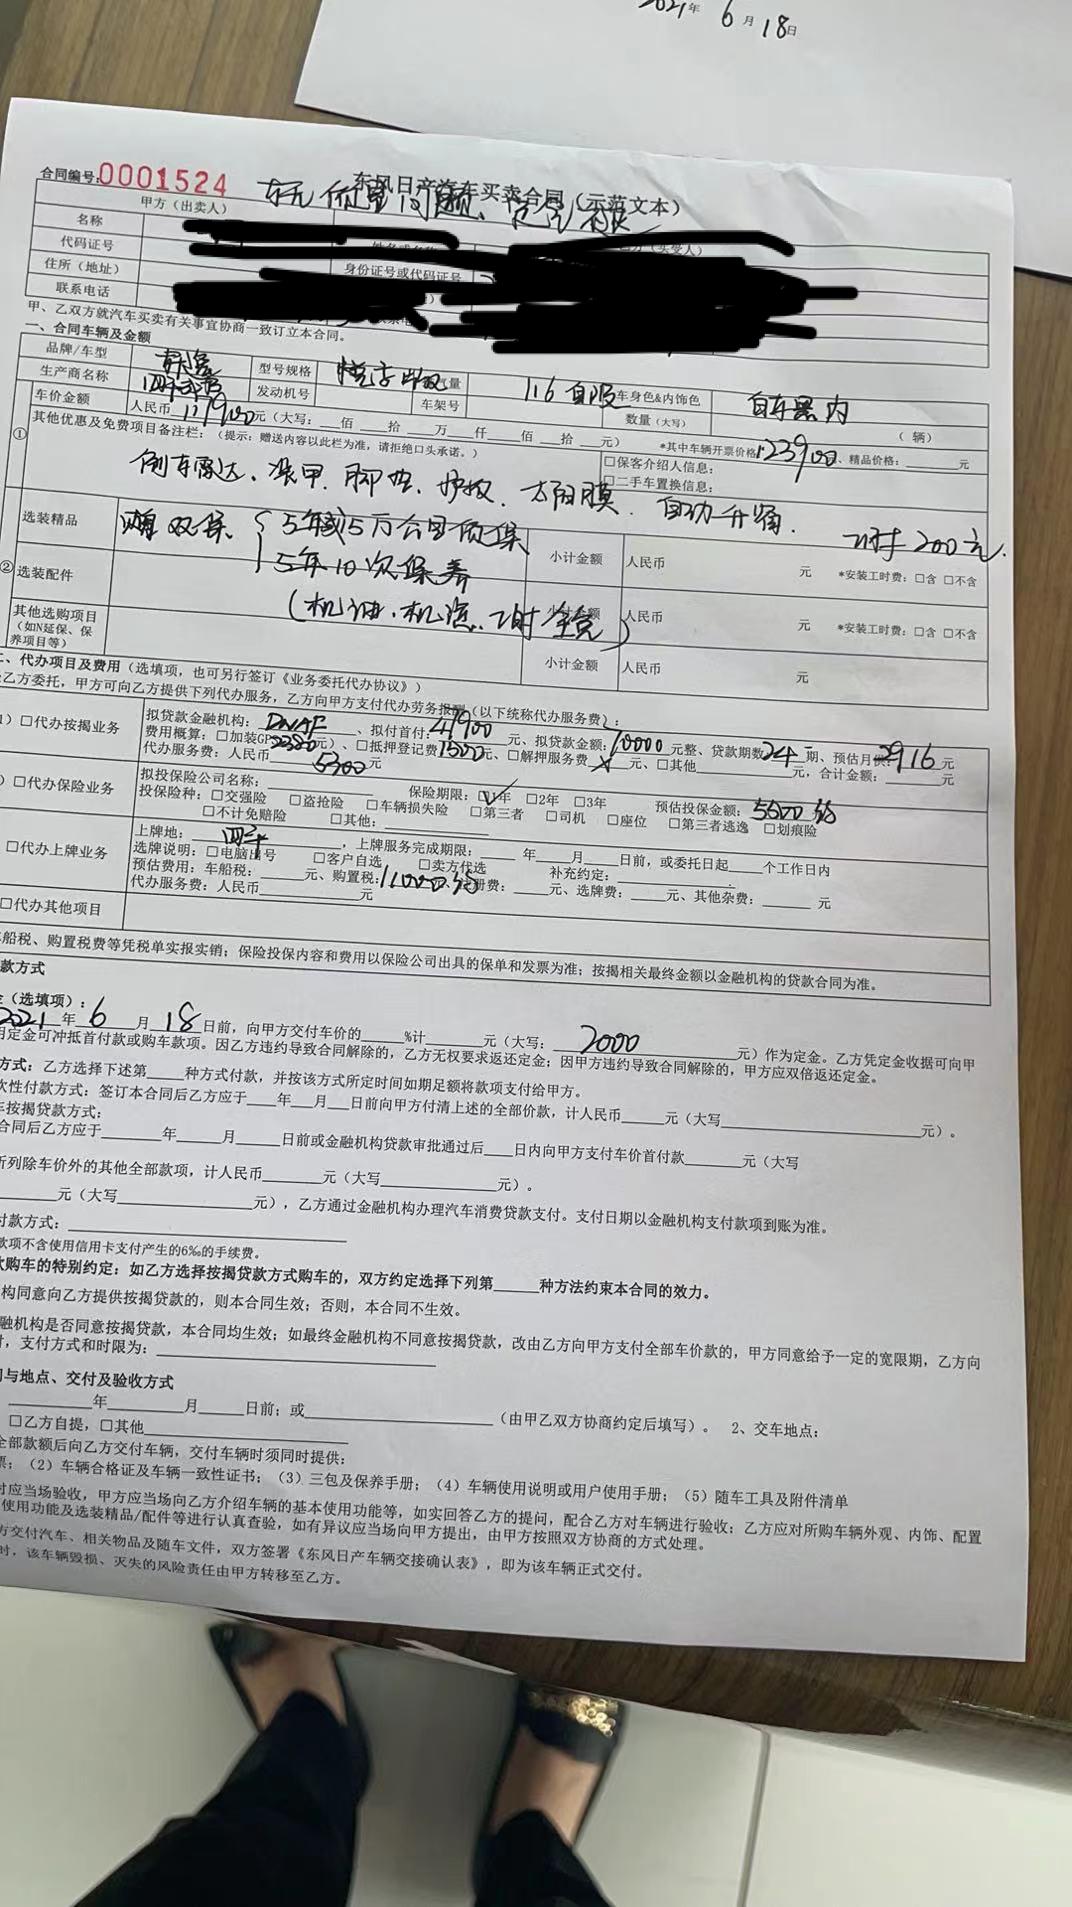 2021年 6月 18日
合同编号:0001524
东风日产汽车买卖合同(示范文本)
车无质量问题、定金不
甲方(出卖人)
名称
代码证号
身份证号或代码证号
住所(地址)
联系电话
甲、乙双方就汽车买卖有关事宜协商一致订立本合同。
一、合同车辆及金额
品牌/车型 轩逸 型号规格 悦享 1.6 自吸 车身色&内饰色 白车黑内
生产商名称 发动机号 车架号 数量(大写) (辆)
车价金额 人民币 117900元(大写: 佰 拾 万 仟 佰 拾 元) *其中车辆开票价格:123900、精品价格: 元
①其他优惠及免费项目备注栏:(提示:赠送内容以此栏为准,请拒绝口头承诺。) □保客介绍人信息:
□二手车置换信息:
倒车雷达、装甲、脚垫、护板、太阳膜、自动升窗. 工时 200元.
选装精品 双保 5年或5万公里质保 小计金额 人民币 元 *安装工时费:□含 □不含
②选装配件 5年10次保养 小计金额 人民币 元 *安装工时费:□含 □不含
其他选购项目(如N延保、保养项目等) (机油、机滤、工时全免) 小计金额 人民币 元
二、代办项目及费用(选填项,也可另行签订《业务委托代办协议》)
乙方委托,甲方可向乙方提供下列代办服务,乙方向甲方支付代办劳务报酬(以下统称代办服务费):
□代办按揭业务 拟贷款金融机构:DNAF、拟付首付:47900元、拟贷款金额:70000元整、贷款期数24期、预估月供2916元
费用概算:□加装GPS2380元)、□抵押登记费1500元、□解押服务费×元、□其他 元,合计金额: 元
代办服务费:人民币 5300元
□代办保险业务 拟投保险公司名称: 保险期限:☑1年 □2年 □3年 预估投保金额:5600
投保险种:□交强险 □盗抢险 □车辆损失险 □第三者 □司机 □座位 □第三者逃逸 □划痕险
□不计免赔险 □其他:
□代办上牌业务 上牌地: ,上牌服务完成期限: 年 月 日前,或委托日起 个工作日内
选牌说明:□电脑出号 □客户自选 □卖方代选 补充约定:
预估费用:车船税: 元、购置税:11000 注册费: 元、选牌费: 元、其他杂费: 元
代办服务费:人民币 元
□代办其他项目
船税、购置税费等凭税单实报实销;保险投保内容和费用以保险公司出具的保单和发票为准;按揭相关最终金额以金融机构的贷款合同为准。
款方式
(选填项):
2021年 6月 18日前,向甲方交付车价的 %计 元(大写: 2000 元)作为定金。乙方凭定金收据可向甲
定金可冲抵首付款或购车款项。因乙方违约导致合同解除的,乙方无权要求返还定金;因甲方违约导致合同解除的,甲方应双倍返还定金。
方式:乙方选择下述第 种方式付款,并按该方式所定时间如期足额将款项支付给甲方。
次性付款方式:签订本合同后乙方应于 年 月 日前向甲方付清上述的全部价款,计人民币 元(大写 元)。
按揭贷款方式:
合同后乙方应于 年 月 日前或金融机构贷款审批通过后 日内向甲方支付车价首付款 元(大写
所列除车价外的其他全部款项,计人民币 元(大写 元)。
元(大写 元),乙方通过金融机构办理汽车消费贷款支付。支付日期以金融机构支付款项到账为准。
付款方式:
款项不含使用信用卡支付产生的6‰的手续费。
款购车的特别约定:如乙方选择按揭贷款方式购车的,双方约定选择下列第 种方法约束本合同的效力。
构同意向乙方提供按揭贷款的,则本合同生效;否则,本合同不生效。
融机构是否同意按揭贷款,本合同均生效;如最终金融机构不同意按揭贷款,改由乙方向甲方支付全部车价款的,甲方同意给予一定的宽限期,乙方向
,支付方式和时限为:
与地点、交付及验收方式
年 月 日前;或 (由甲乙双方协商约定后填写)。 2、交车地点:
□乙方自提,□其他
全部款额后向乙方交付车辆,交付车辆时须同时提供:
票;(2)车辆合格证及车辆一致性证书;(3)三包及保养手册;(4)车辆使用说明或用户使用手册;(5)随车工具及附件清单
时应当场验收,甲方应当场向乙方介绍车辆的基本使用功能等,如实回答乙方的提问,配合乙方对车辆进行验收;乙方应对所购车辆外观、内饰、配置
使用功能及选装精品/配件等进行认真查验,如有异议应当场向甲方提出,由甲方按照双方协商的方式处理。
方交付汽车、相关物品及随车文件,双方签署《东风日产车辆交接确认表》,即为该车辆正式交付。
时,该车辆毁损、灭失的风险责任由甲方转移至乙方。